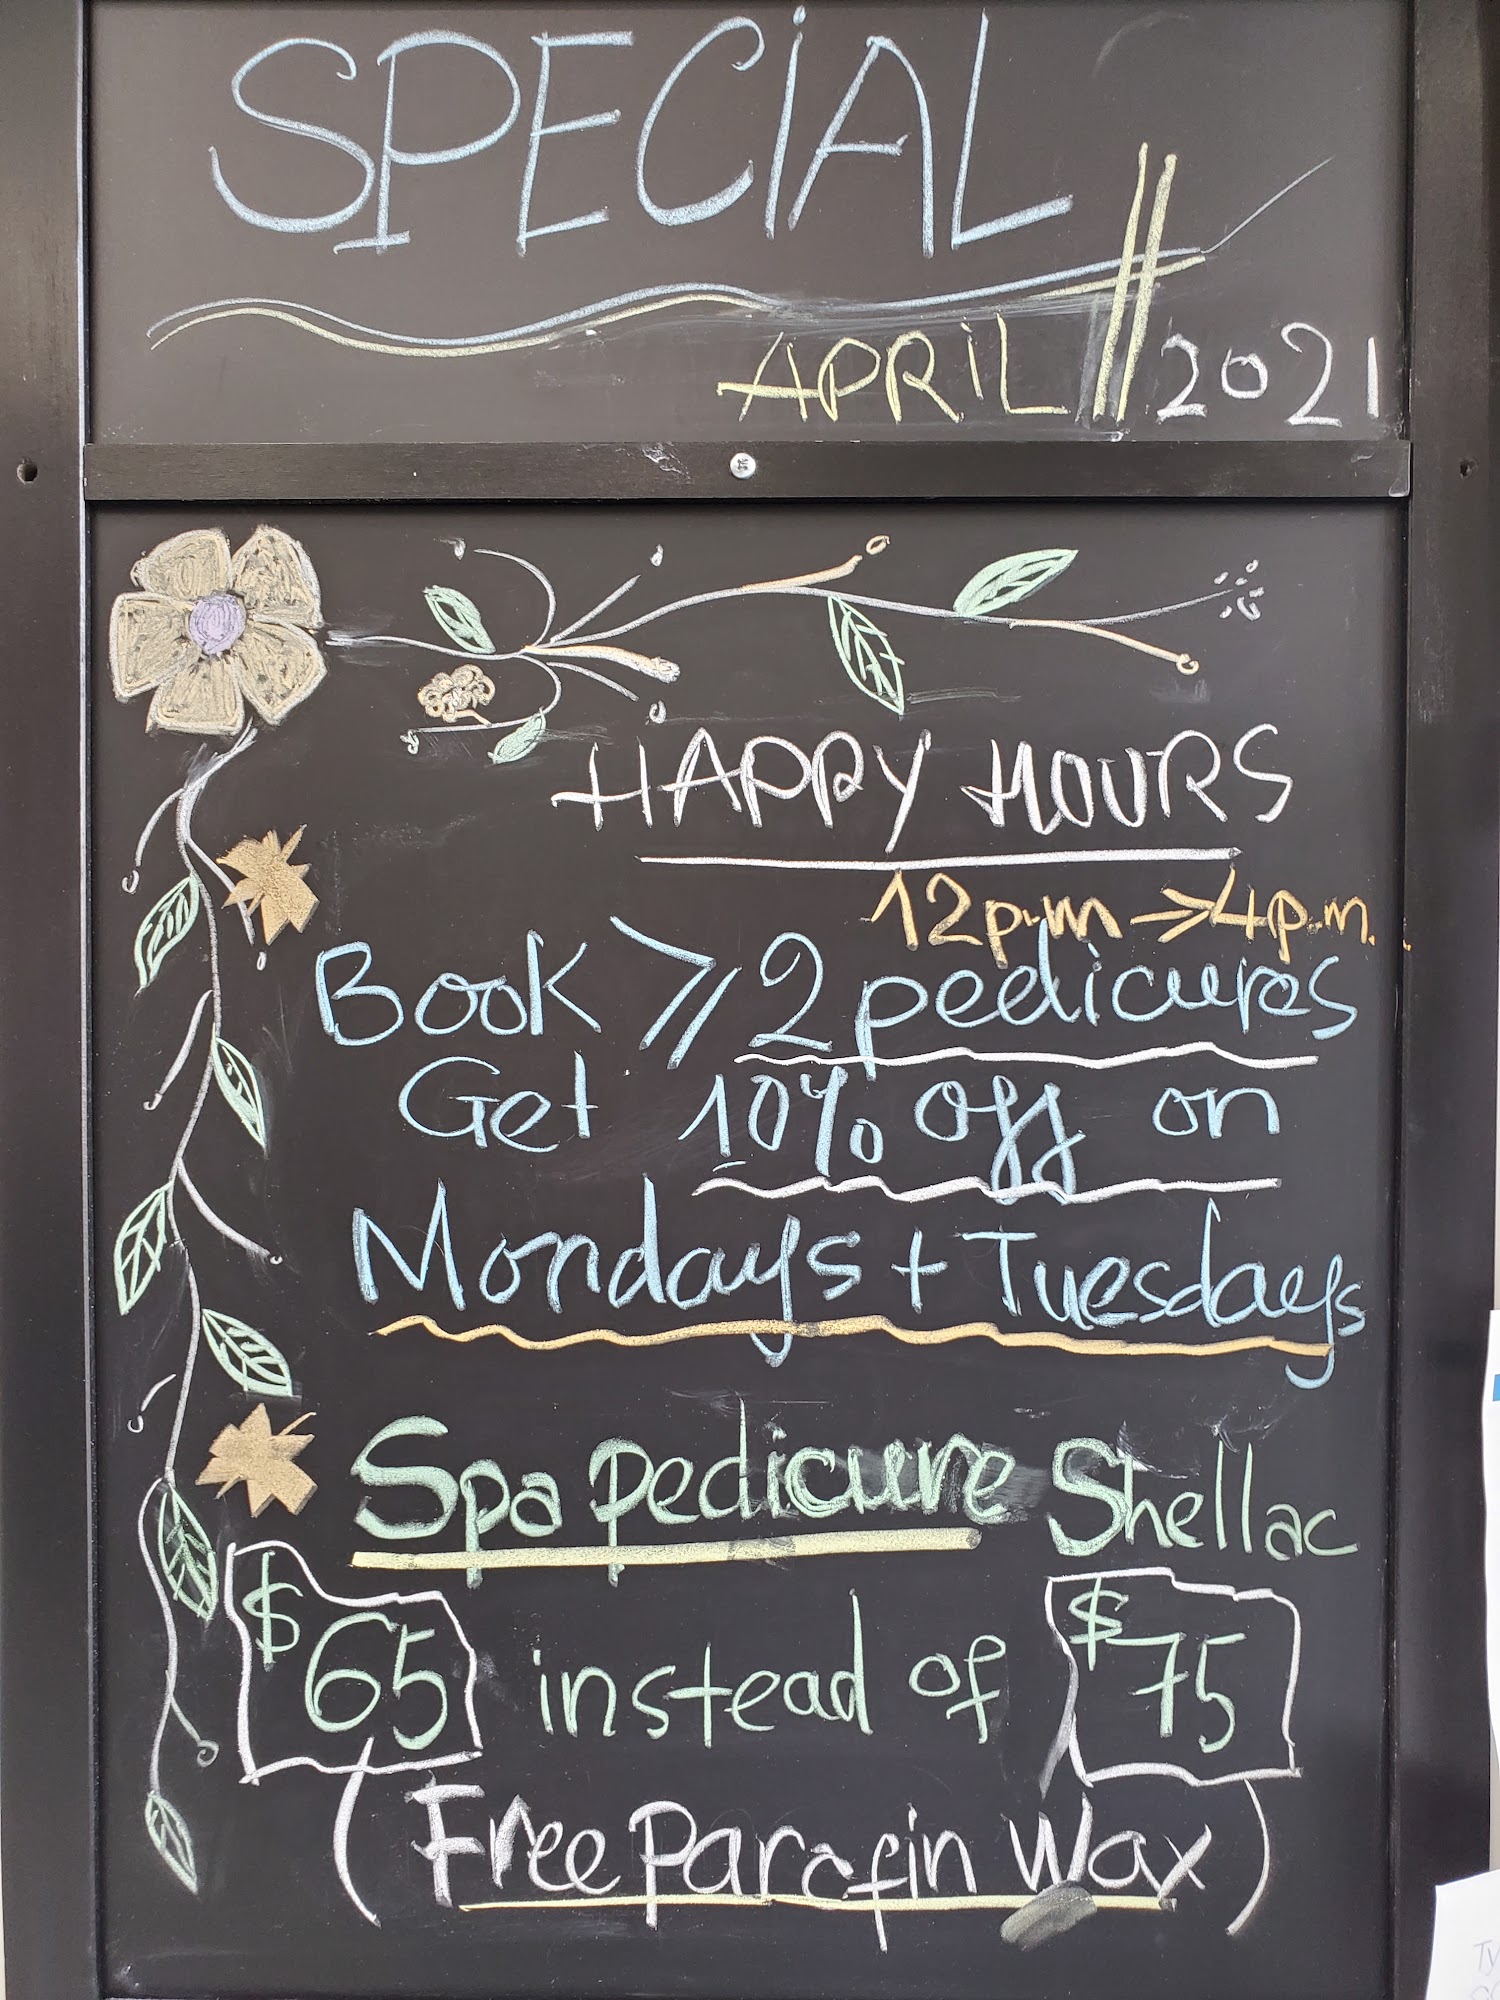 SPECIAL
APRIL 2021
HAPPY HOURS
12p.m → 4p.m.
Book ⩾ 2 pedicures
Get 10% off on
Mondays + Tuesdays
Spa pedicure Shellac
$65 instead of $75
(Free Parafin Wax)
Ty